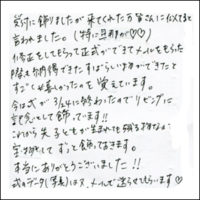 受付に飾りましたが来てくれた方皆さんに似てると
言われました。(特に旦那が♡♡)
修正をしてもらって正式ができてメールをもらった
時に納得できたすばらしいものができたと
すごく嬉しかったのを覚えています。
今は式が3/24に終わったのでリビングに
記念として飾っています!!
これから先子どもが生まれても残る物なので
宝物としてずっと飾っておきます。
本当にありがとうございました!!
式のデータ(写真)はメールで送らせてもらいます♡